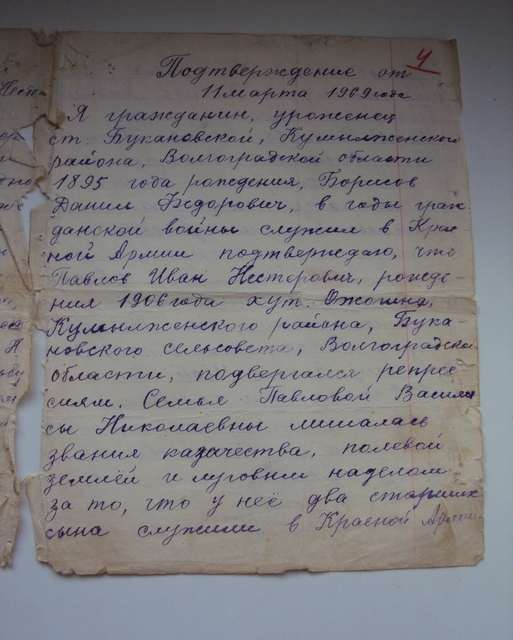 4
Подтверждение от
11 марта 1969 года.
Я гражданин, уроженец
ст. Букановской, Кумылженского
района, Волгоградской области
1895 года рождения, Борисов
Данил Федорович, в годы граж-
данской войны служил в Крас-
ной Армии подтверждаю, что
Павлов Иван Нестерович, рожде-
ния 1906 года хут. Ожогина,
Кумылженского района, Бука-
новского сельсовета, Волгоградской
области, подвергался репрес
сиям. Семья Павловой Васили
сы Николаевны лишалась
звания казачества, полевой
землёй и луговым наделом
за то, что у неё два старших
сына служили в Красной Армии